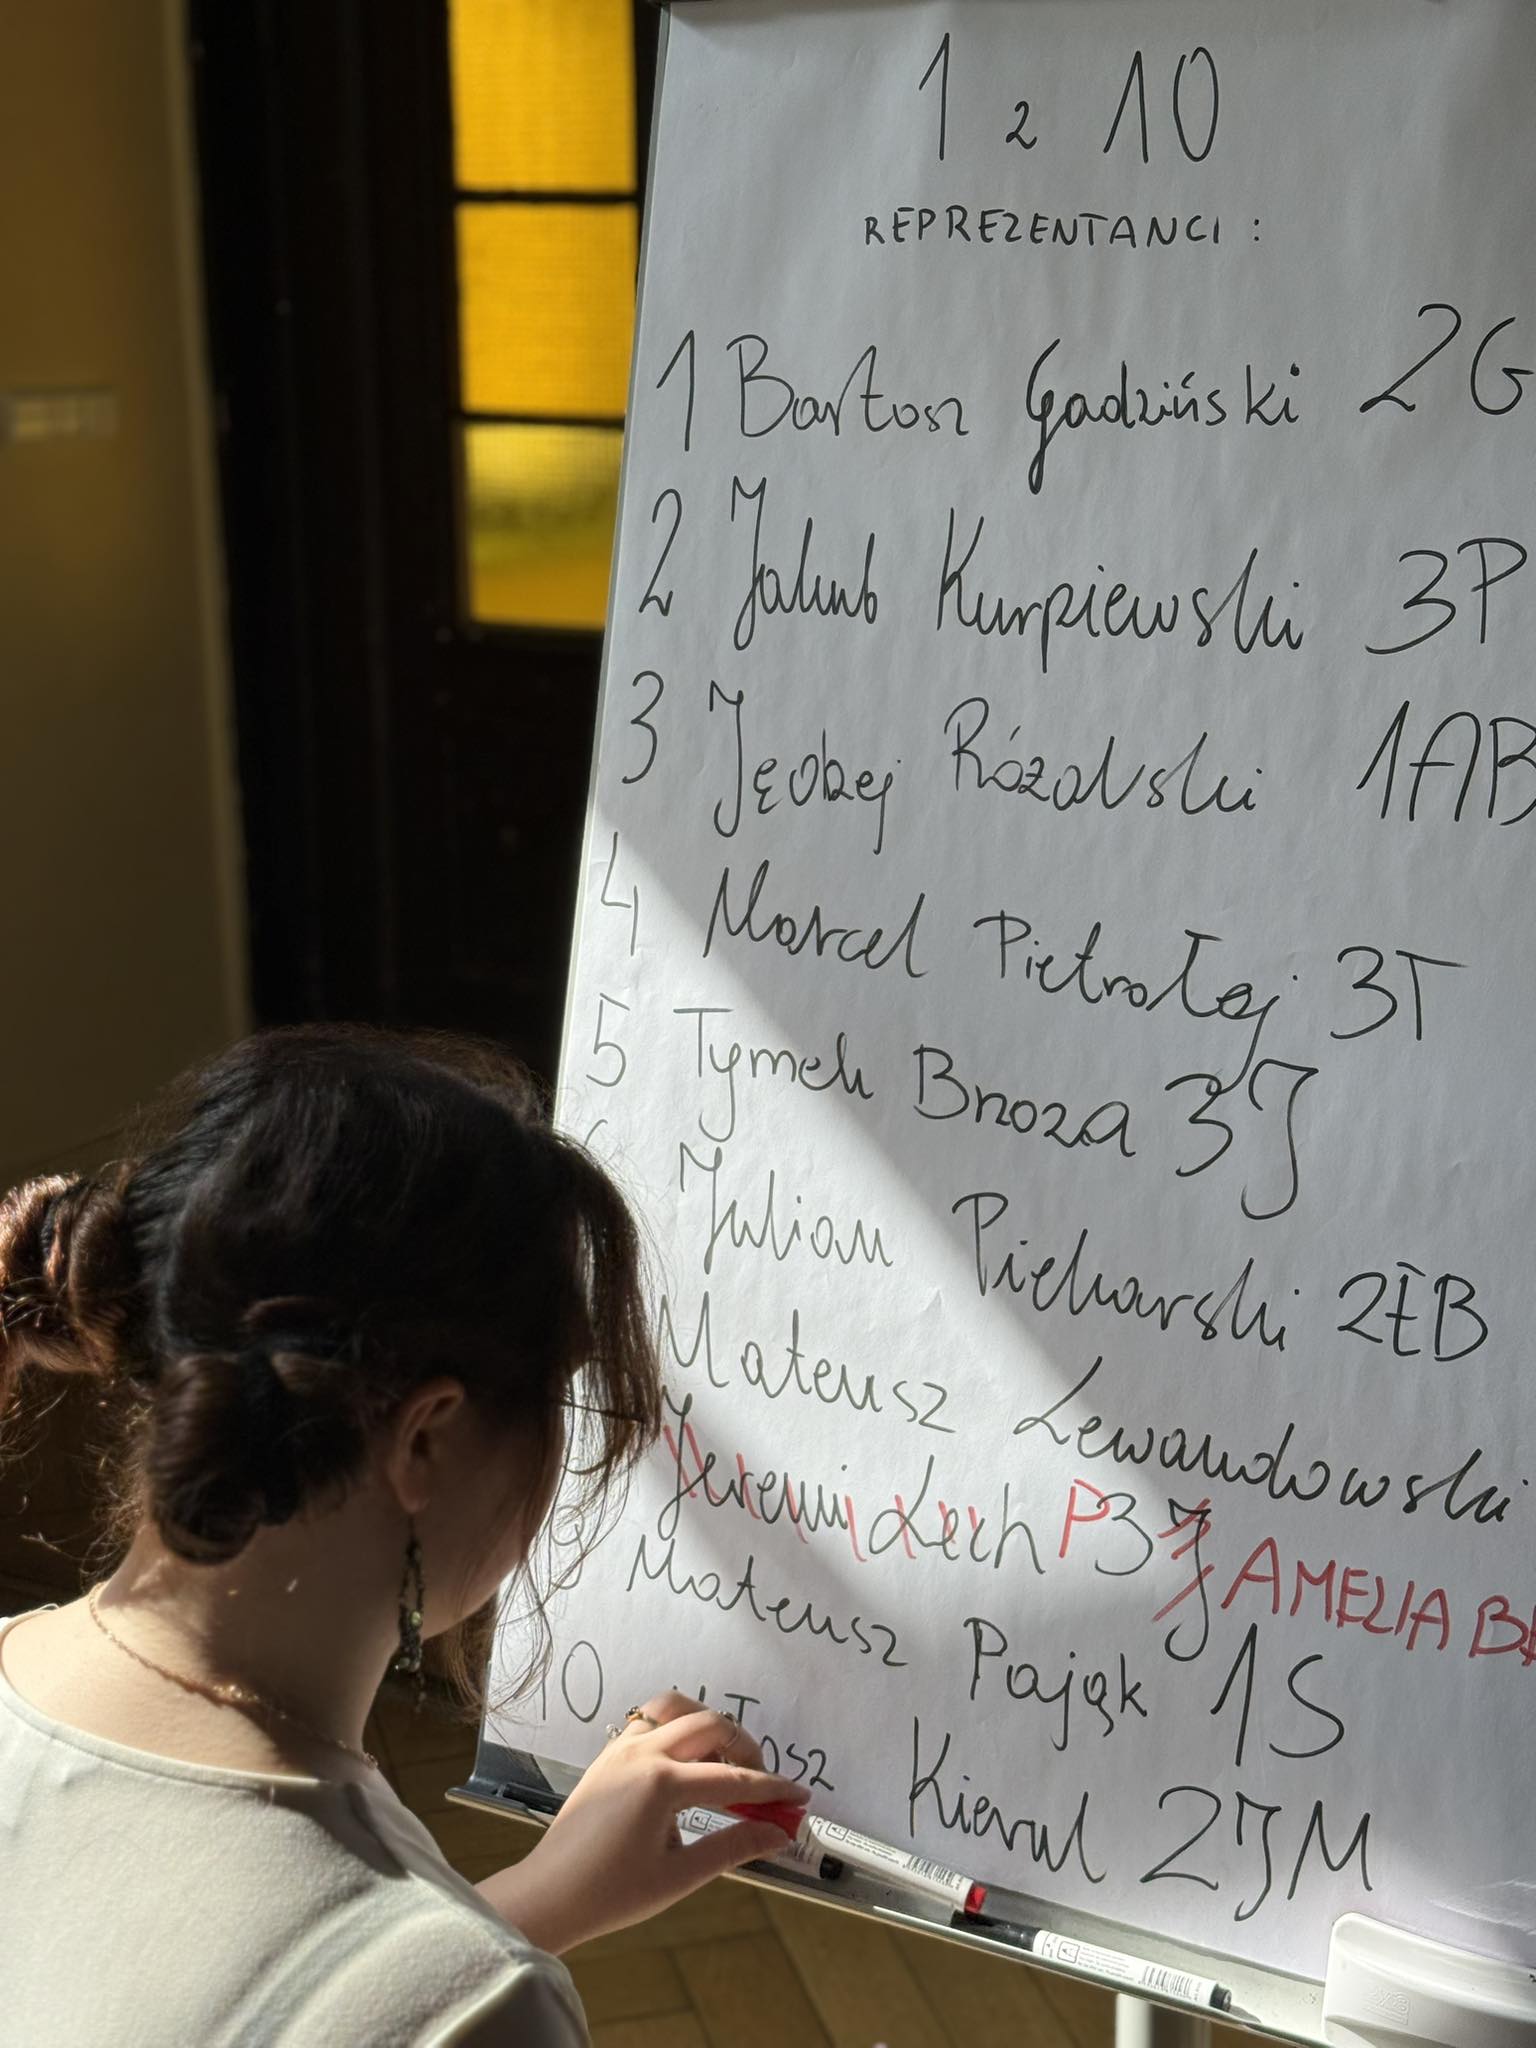 1 z 10
REPREZENTANCI :
1 Bartosz Gadziński 2G
2 Jakub Kurpiewski 3P
3 Jędrzej Rózalski 1AB
4 Marcel Pietrołaj 3T
5 Tymek Brzoza 3J
Julian Piekarski 2EB
Mateusz Lewandowski
Jeremi Lech P3J AMELIA
9 Mateusz Pająk 1S
10 Kierul 2JM